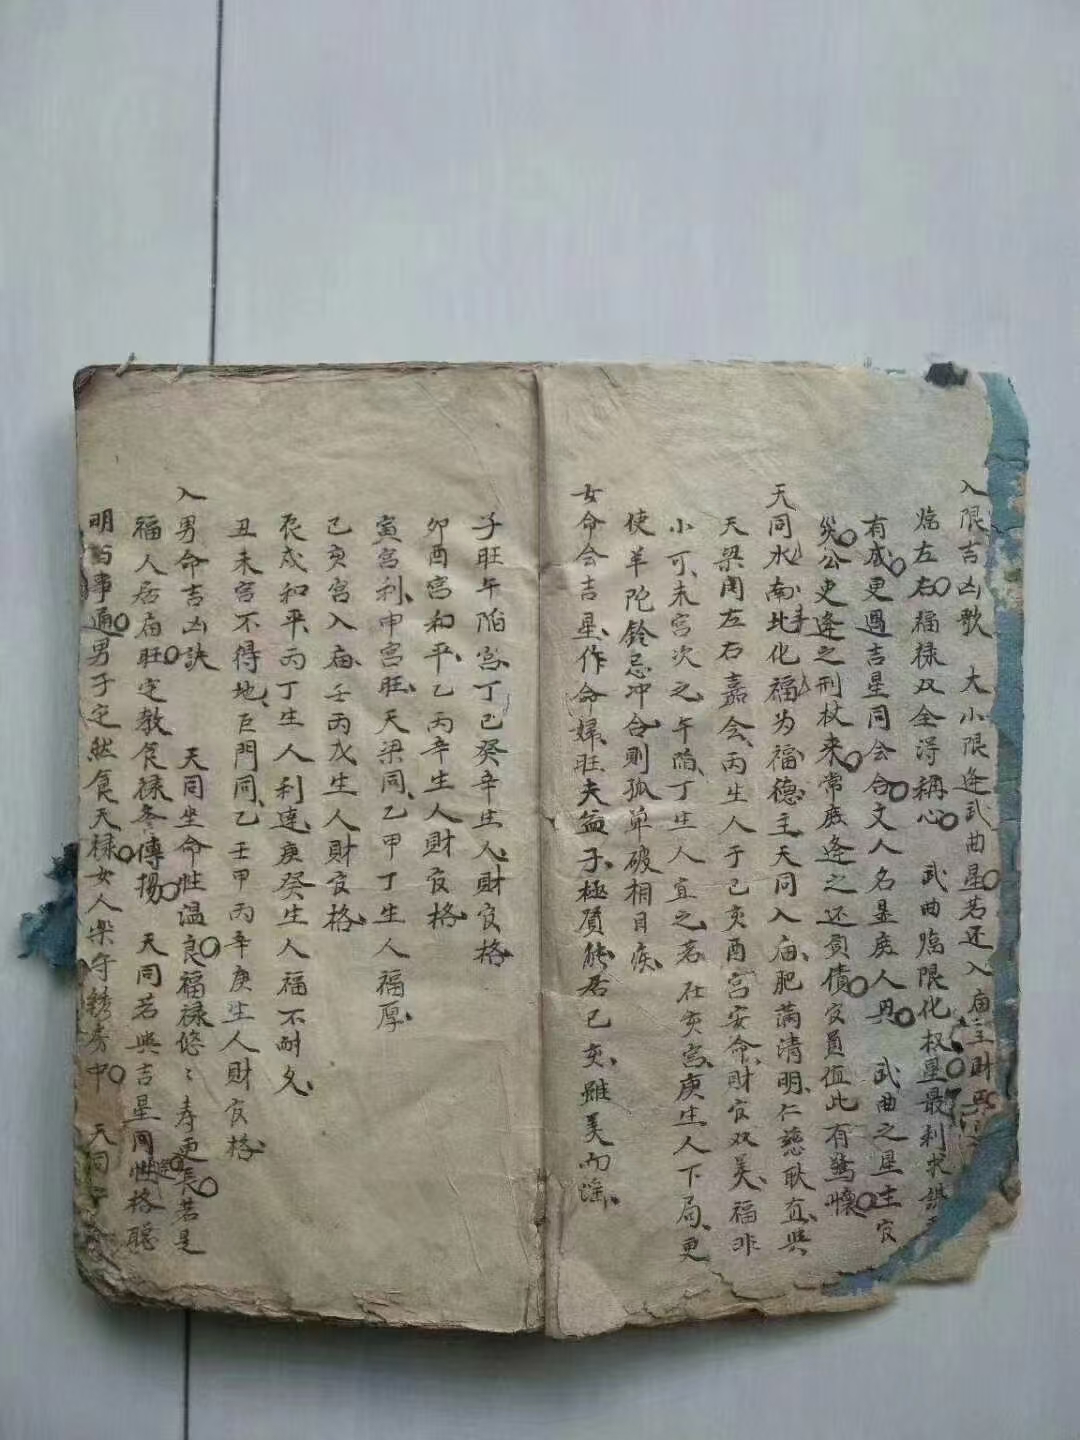 入限吉凶歌　大小限逢武曲星若还入庙主財
临左右福禄双全得称心　武曲临限化权星最利求
有成更遇吉星同会合文人名显庶人兴　武曲之星主官
災公吏逢之刑杖来常庶逢之还负債官員值此有驚懷
天同水南北化福为福德主天同入庙肥满清明仁慈耿直与
天梁周左右嘉会丙生人于巳亥酉宫安命財官双美福非
小可未宫次之午陷丁生人宜之若在亥宫庚生人下局更
使羊陀铃忌冲合則孤单破相目疾
女命会吉星作命婦旺夫益子極贤能居巳亥虽美而谣
子旺午陷宫丁己癸辛生人財官格
卯酉宫和平乙丙辛生人財官格
寅宫利申宫旺天梁同乙甲丁生人福厚
巳亥宫入庙壬丙戊生人財官格
辰戌和平丙丁生人利達庚癸生人福不耐久
丑未宫不得地巨門同乙壬甲丙辛庚生人財官格
入男命吉凶訣　天同坐命性温良福禄悠悠寿更長若是
福人居庙旺定教食禄冬傳揚　天同若與吉星同性格聪
明百事通男子定然食天禄女人樂守绣房中　天同